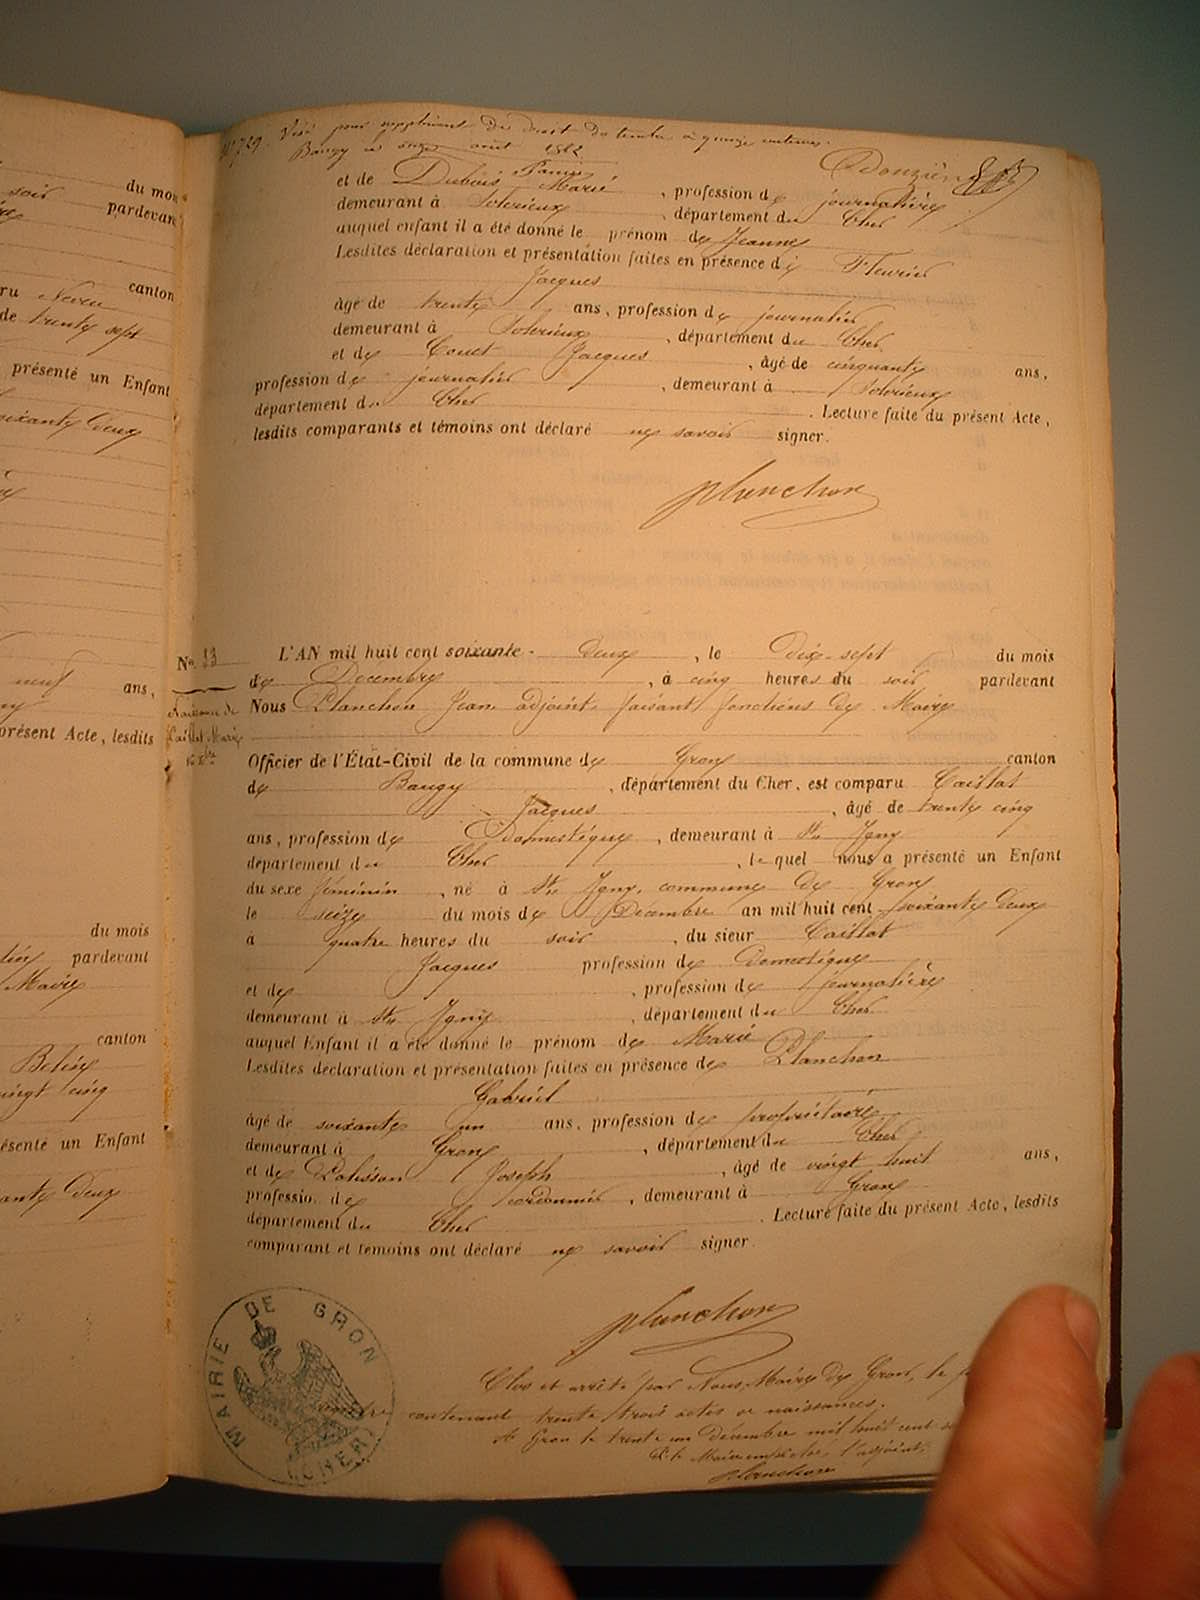 soir du mois
pardevant
canton
ru Neveu
de trente sept
présenté un Enfant
soixante deux
neuf ans,
présent Acte, lesdits
du mois
pardevant
Maire
canton
vingt cinq
ésenté un Enfant
soixante Deux
N° 729 Visé pour supplément de droit de timbre à quinze centimes.
Baugy le onze août 1862
et de Dubois Marie, profession de journalière
demeurant à Solerieux, département du Cher
auquel enfant il a été donné le prénom de Jeanne
Lesdites déclaration et présentation faites en présence de Fleurier
Jacques
âgé de trente ans, profession de journalier
demeurant à Solerieux, département du Cher
et de Couet Jacques, âgé de cinquante ans,
profession de journalier, demeurant à Solerieux
département du Cher. Lecture faite du présent Acte,
lesdits comparants et témoins ont déclaré ne savoir signer.
Planchon
No. 33 L'AN mil huit cent soixante-deux, le dix-sept du mois
de Décembre, à cinq heures du soir pardevant
Naissance de
Caillat Marie
Nous Planchon Jean adjoint faisant fonctions de Maire
Officier de l'État-Civil de la commune de Gron canton
de Baugy, département du Cher, est comparu Caillat
Jacques, âgé de trente cinq
ans, profession de Domestique, demeurant à Ste Igny
département du Cher, lequel nous a présenté un Enfant
du sexe féminin, né à Ste Igny, commune de Gron
le seize du mois de Décembre an mil huit cent soixante deux
à quatre heures du soir, du sieur Caillat
Jacques profession de Domestique
et de, profession de journalière
demeurant à Ste Igny, département du Cher
auquel Enfant il a été donné le prénom de Marie
Lesdites déclaration et présentation faites en présence de Planchon
Gabriel
âgé de soixante un ans, profession de propriétaire
demeurant à Gron, département du Cher
et de Polisson Joseph, âgé de vingt huit ans,
profession de cordonnier, demeurant à Gron
département du Cher. Lecture faite du présent Acte, lesdits
comparant et témoins ont déclaré ne savoir signer.
Planchon
MAIRIE DE GRON
(CHER)
Clos et arrêté par Nous Maire de Gron, le
contenant trente trois actes de naissances.
A Gron le trente un décembre mil huit cent
P. le Maire empêché, l'adjoint,
Planchon